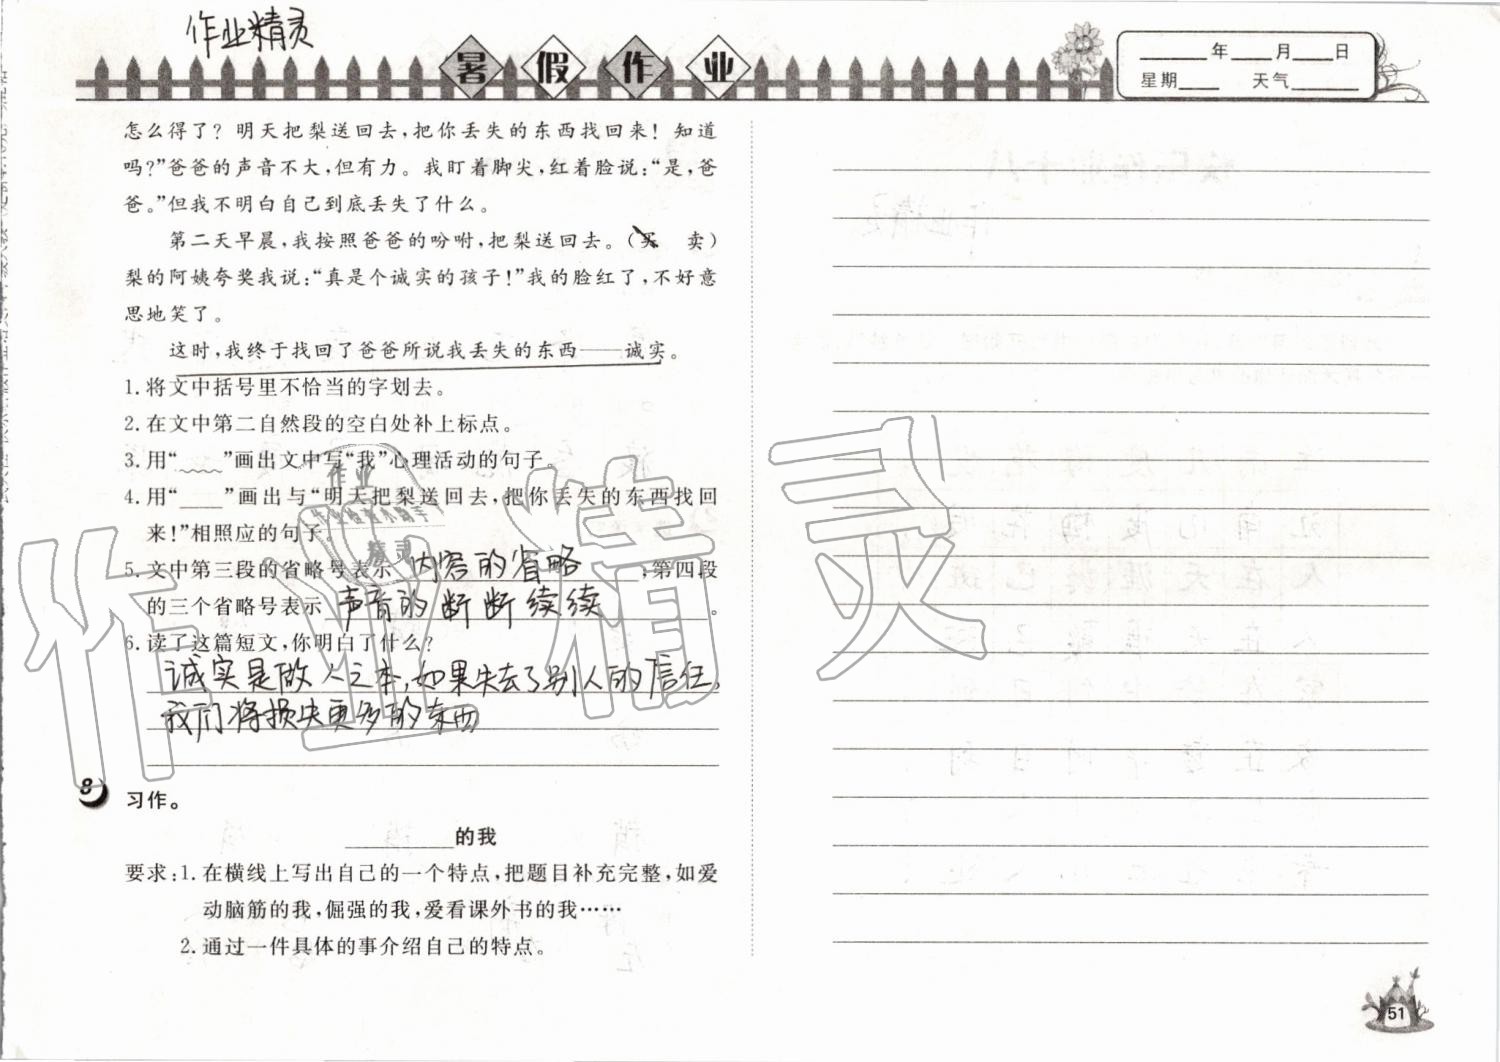 作业精灵
暑假作业
年 月 日
星期 天气
怎么得了？明天把梨送回去，把你丢失的东西找回来！知道
吗？”爸爸的声音不大，但有力。我盯着脚尖，红着脸说：“是，爸
爸。”但我不明白自己到底丢失了什么。
第二天早晨，我按照爸爸的吩咐，把梨送回去。（买 卖）
梨的阿姨夸奖我说：“真是个诚实的孩子！”我的脸红了，不好意
思地笑了。
这时，我终于找回了爸爸所说我丢失的东西——诚实。
1.将文中括号里不恰当的字划去。
2.在文中第二自然段的空白处补上标点。
3.用“﹏﹏”画出文中写“我”心理活动的句子。
4.用“____”画出与“明天把梨送回去，把你丢失的东西找回
来！”相照应的句子。
5.文中第三段的省略号表示 内容的省略 ，第四段
的三个省略号表示 声音的断断续续 。
6.读了这篇短文，你明白了什么？
诚实是做人之本，如果失去了别人的信任，
我们将损失更多的东西
8 习作。
________的我
要求：1.在横线上写出自己的一个特点，把题目补充完整，如爱
动脑筋的我，倔强的我，爱看课外书的我……
2.通过一件具体的事介绍自己的特点。
作业精灵
作业
精灵
51